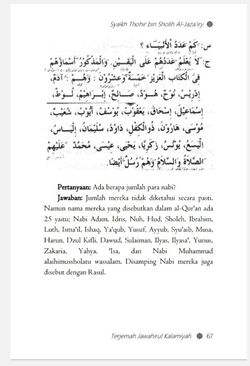 Syaikh Thohir bin Sholih Al-Jaza'iry
س: كَمْ عَدَدُ الْأَنْبِيَاءِ؟
ج: لَا يُعْلَمُ عَدَدُهُمْ عَلَى الْيَقِيْنِ. وَالْمَذْكُوْرُ أَسْمَاؤُهُمْ
فِي الْكِتَابِ الْعَزِيْزِ خَمْسَةٌ وَعِشْرُوْنَ: وَهُمْ: آدَمُ،
إِدْرِيْسُ، نُوْحٌ، هُوْدٌ، صَالِحٌ، إِبْرَاهِيْمُ، لُوْطٌ،
إِسْمَاعِيْلُ، إِسْحَاقُ، يَعْقُوْبُ، يُوْسُفُ، أَيُّوْبُ، شُعَيْبٌ،
مُوْسَى، هَارُوْنُ، ذُو الْكِفْلِ، دَاوُدُ، سُلَيْمَانُ، إِلْيَاسُ،
الْيَسَعُ، يُوْنُسُ، زَكَرِيَّا، يَحْيَى، عِيْسَى، مُحَمَّدٌ عَلَيْهِمُ
الصَّلَاةُ وَالسَّلَامُ وَهُمْ رُسُلٌ أَيْضًا.
Pertanyaan: Ada berapa jumlah para nabi?
Jawaban: Jumlah mereka tidak diketahui secara pasti.
Namun nama mereka yang disebutkan dalam al-Qur'an ada
25 yaitu; Nabi Adam, Idris, Nuh, Hud, Sholeh, Ibrahim,
Luth, Isma'il, Ishaq, Ya'qub, Yusuf, Ayyub, Syu'aib, Musa,
Harun, Dzul Kifli, Dawud, Sulaiman, Ilyas, Ilyasa', Yunus,
Zakaria, Yahya. 'Isa, dan Nabi Muhammad
alaihimussholatu wassalam. Disamping Nabi mereka juga
disebut dengan Rasul.
Terjemah Jawahirul Kalamiyah 67